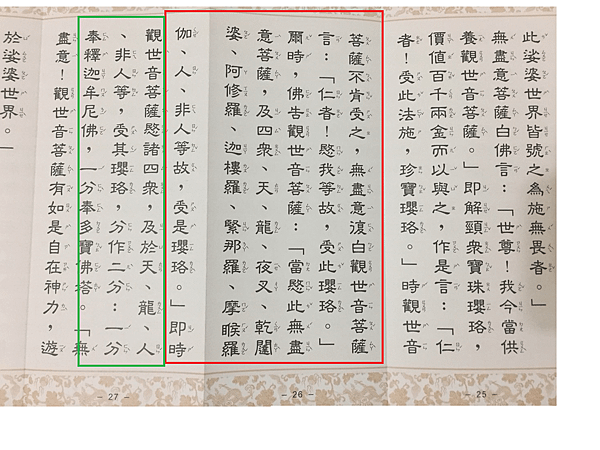 此娑婆世界皆號之為施無畏者。」
無盡意菩薩白佛言：「世尊！我今當供
養觀世音菩薩。」即解頸眾寶珠瓔珞，
價值百千兩金而以與之，作是言：「仁
者！受此法施，珍寶瓔珞。」時觀世音
- 25 -
菩薩不肯受之，無盡意復白觀世音菩薩
言：「仁者！愍我等故，受此瓔珞。」
爾時，佛告觀世音菩薩：「當愍此無盡
意菩薩，及四眾、天、龍、夜叉、乾闥
婆、阿修羅、迦樓羅、緊那羅、摩睺羅
- 26 -
伽、人、非人等故，受是瓔珞。」即時
觀世音菩薩愍諸四眾，及於天、龍、人
、非人等，受其瓔珞，分作二分：一分
奉釋迦牟尼佛，一分奉多寶佛塔。「無
盡意！觀世音菩薩有如是自在神力，遊
- 27 -
於娑婆世界。」